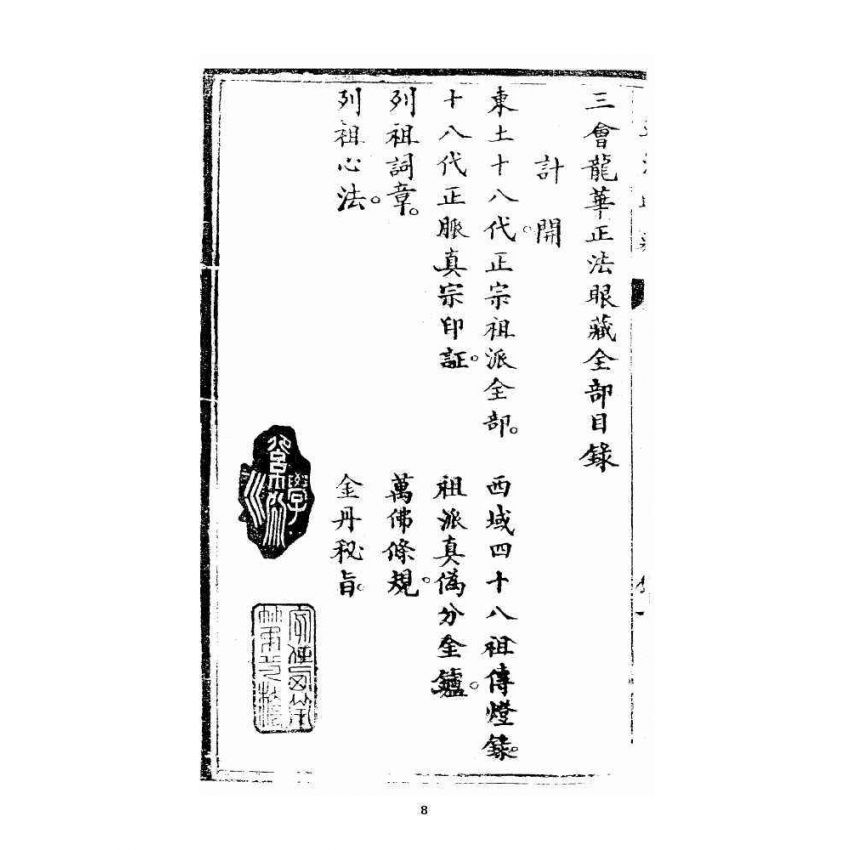 三會龍華正法眼藏全部目錄
計開
東土十八代正宗祖派全部。 西域四十八祖傳燈錄。
十八代正脈真宗印証。 祖派真偽分金鑪。
列祖詞章。 萬佛條規。
列祖心法。 金丹秘旨。
8